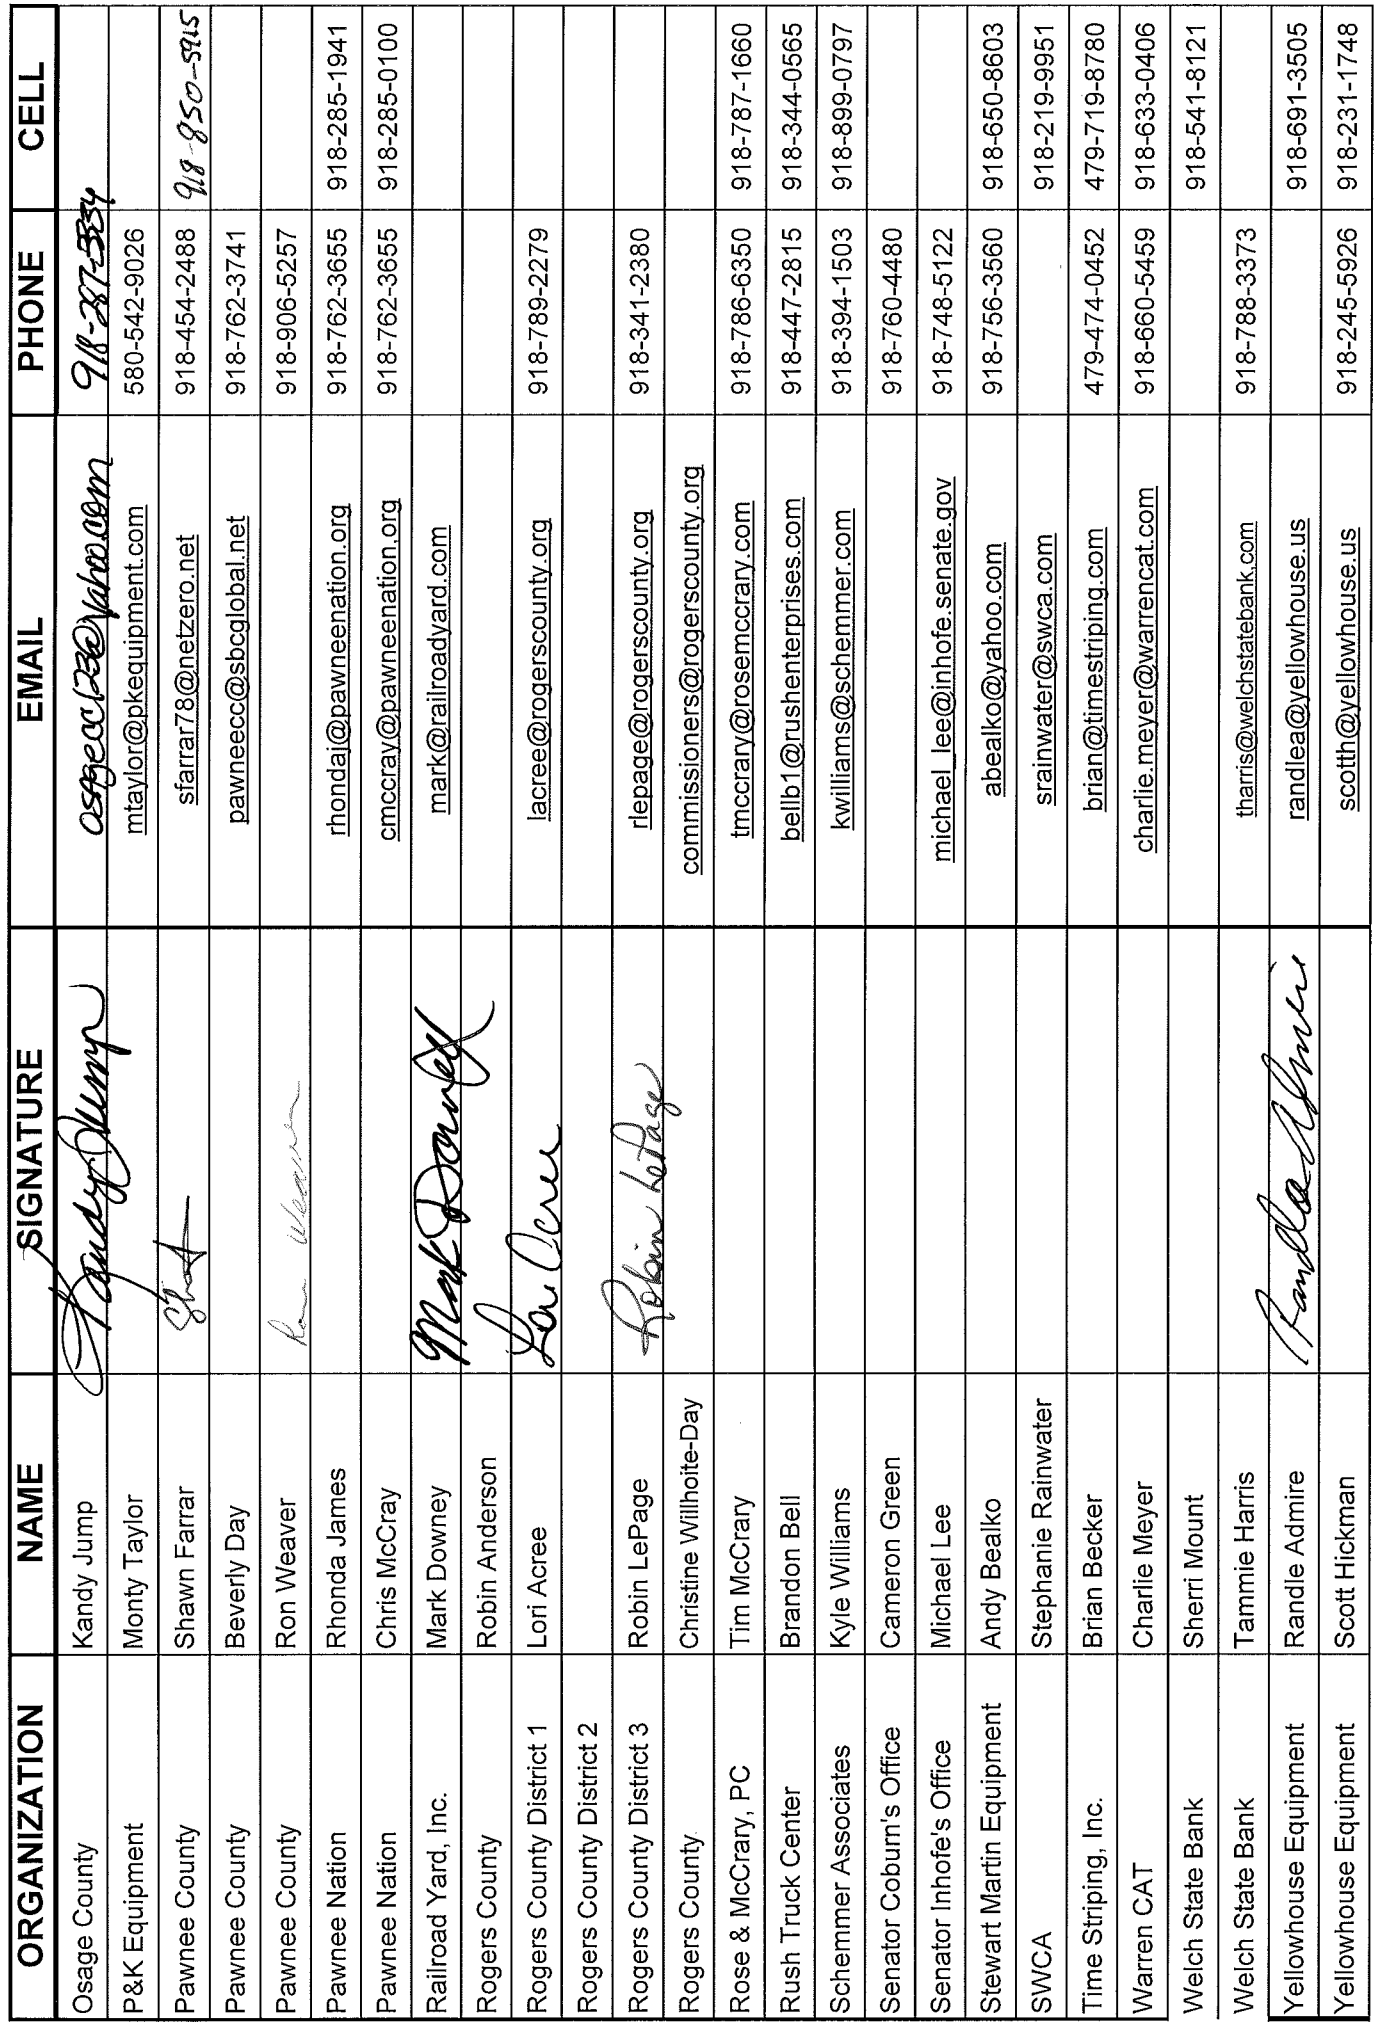 ORGANIZATION NAME SIGNATURE EMAIL PHONE CELL
Osage County Kandy Jump Kandy Jump osagecc123@yahoo.com 918-287-5534
P&K Equipment Monty Taylor mtaylor@pkequipment.com 580-542-9026
Pawnee County Shawn Farrar sfarrar78@netzero.net 918-454-2488 918-850-5915
Pawnee County Beverly Day pawneecc@sbcglobal.net 918-762-3741
Pawnee County Ron Weaver Ron Weaver 918-906-5257
Pawnee Nation Rhonda James rhondaj@pawneenation.org 918-762-3655 918-285-1941
Pawnee Nation Chris McCray cmccray@pawneenation.org 918-762-3655 918-285-0100
Railroad Yard, Inc. Mark Downey Mark Downey mark@railroadyard.com
Rogers County Robin Anderson
Rogers County District 1 Lori Acree Lori Acree lacree@rogerscounty.org 918-789-2279
Rogers County District 2
Rogers County District 3 Robin LePage Robin LePage rlepage@rogerscounty.org 918-341-2380
Rogers County Christine Willhoite-Day commissioners@rogerscounty.org
Rose & McCrary, PC Tim McCrary tmccrary@rosemccrary.com 918-786-6350 918-787-1660
Rush Truck Center Brandon Bell bellb1@rushenterprises.com 918-447-2815 918-344-0565
Schemmer Associates Kyle Williams kwilliams@schemmer.com 918-394-1503 918-899-0797
Senator Coburn's Office Cameron Green 918-760-4480
Senator Inhofe's Office Michael Lee michael_lee@inhofe.senate.gov 918-748-5122
Stewart Martin Equipment Andy Bealko abealko@yahoo.com 918-756-3560 918-650-8603
SWCA Stephanie Rainwater srainwater@swca.com 918-219-9951
Time Striping, Inc. Brian Becker brian@timestriping.com 479-474-0452 479-719-8780
Warren CAT Charlie Meyer charlie.meyer@warrencat.com 918-660-5459 918-633-0406
Welch State Bank Sherri Mount 918-541-8121
Welch State Bank Tammie Harris tharris@welchstatebank.com 918-788-3373
Yellowhouse Equipment Randle Admire Randle Admire randlea@yellowhouse.us 918-691-3505
Yellowhouse Equipment Scott Hickman scotth@yellowhouse.us 918-245-5926 918-231-1748